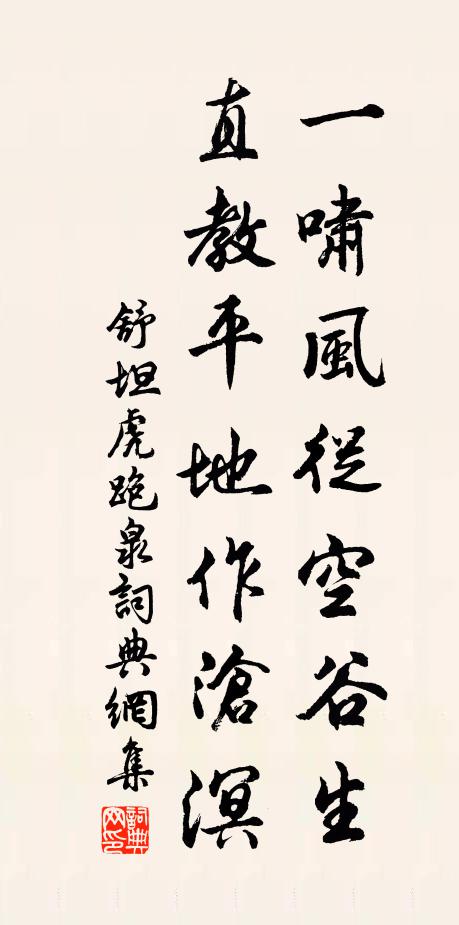 一嘯風從空谷生
直教平地作滄溟
舒坦虎跑泉詞典網集
詞典網印